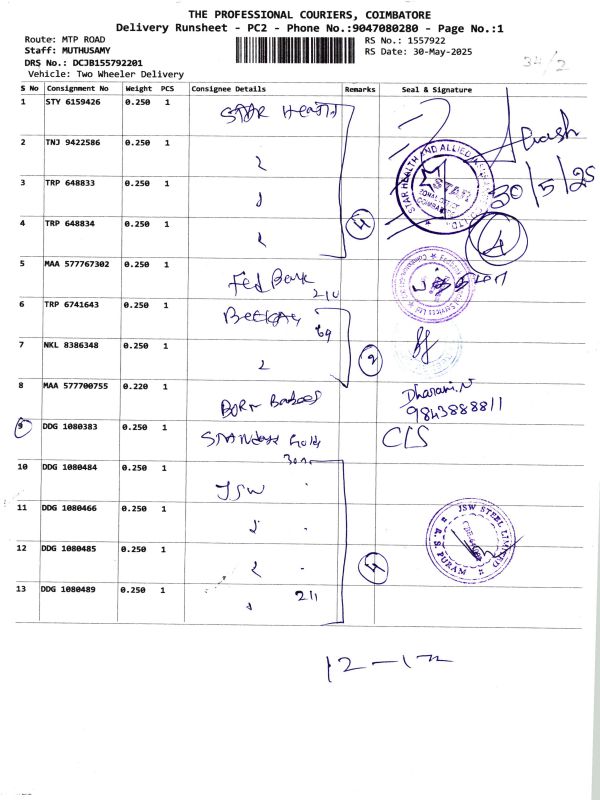 THE PROFESSIONAL COURIERS, COIMBATORE
Delivery Runsheet - PC2 - Phone No.:9047080280 - Page No.:1
Route: MTP ROAD RS No.: 1557922
Staff: MUTHUSAMY RS Date: 30-May-2025
DRS No.: DCJB155792201
34/2
Vehicle: Two Wheeler Delivery
S No Consignment No Weight PCS Consignee Details Remarks Seal & Signature
1 STY 6159426 0.250 1 STAR Health
Akash
2 TNJ 9422586 0.250 1
STAR HEALTH AND ALLIED
STAR
ZONAL OFFICE
COIMBATORE
30/5/25
3 TRP 648833 0.250 1
4 TRP 648834 0.250 1 4 4
5 MAA 577767302 0.250 1 Fed Bank
210
6 TRP 6741643 0.250 1
69
7 NKL 8386348 0.250 1 2
8 MAA 577700755 0.220 1
Dharani.N
9843888811
9 DDG 1080383 0.250 1 Gold C/S
10 DDG 1080484 0.250 1 JSW
11 DDG 1080466 0.250 1
JSW STEEL LIMITED
R.S. PURAM
12 DDG 1080485 0.250 1 4
13 DDG 1080489 0.250 1 211